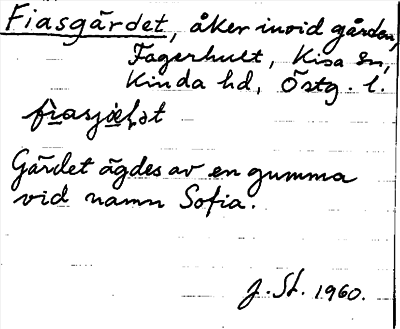 Fiasgärdet, åker invid gården,
Fagerhult, Kisa sn,
Kinda hd, Östg. l.
Gärdet ägdes av en gumma
vid namn Sofia.
J. St. 1960.